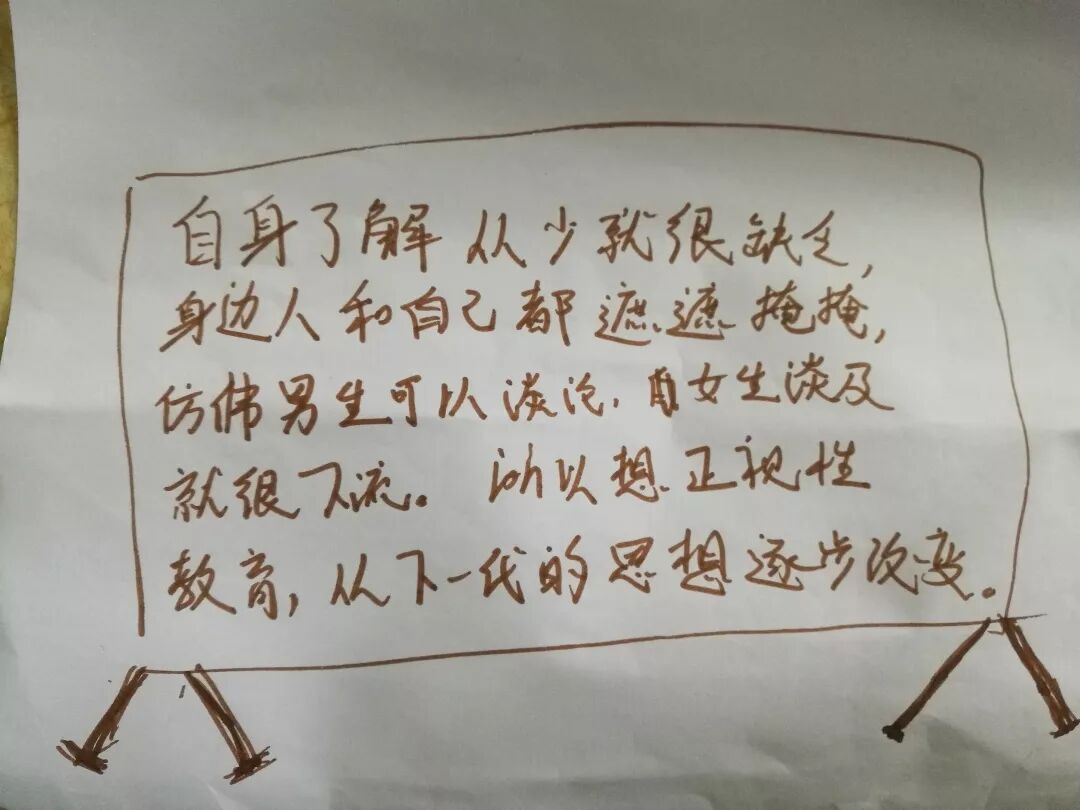 自身了解从少就很缺乏,
身边人和自己都遮遮掩掩,
仿佛男生可以谈论,女生谈及
就很下流。所以想正视性
教育,从下一代的思想逐步改变。